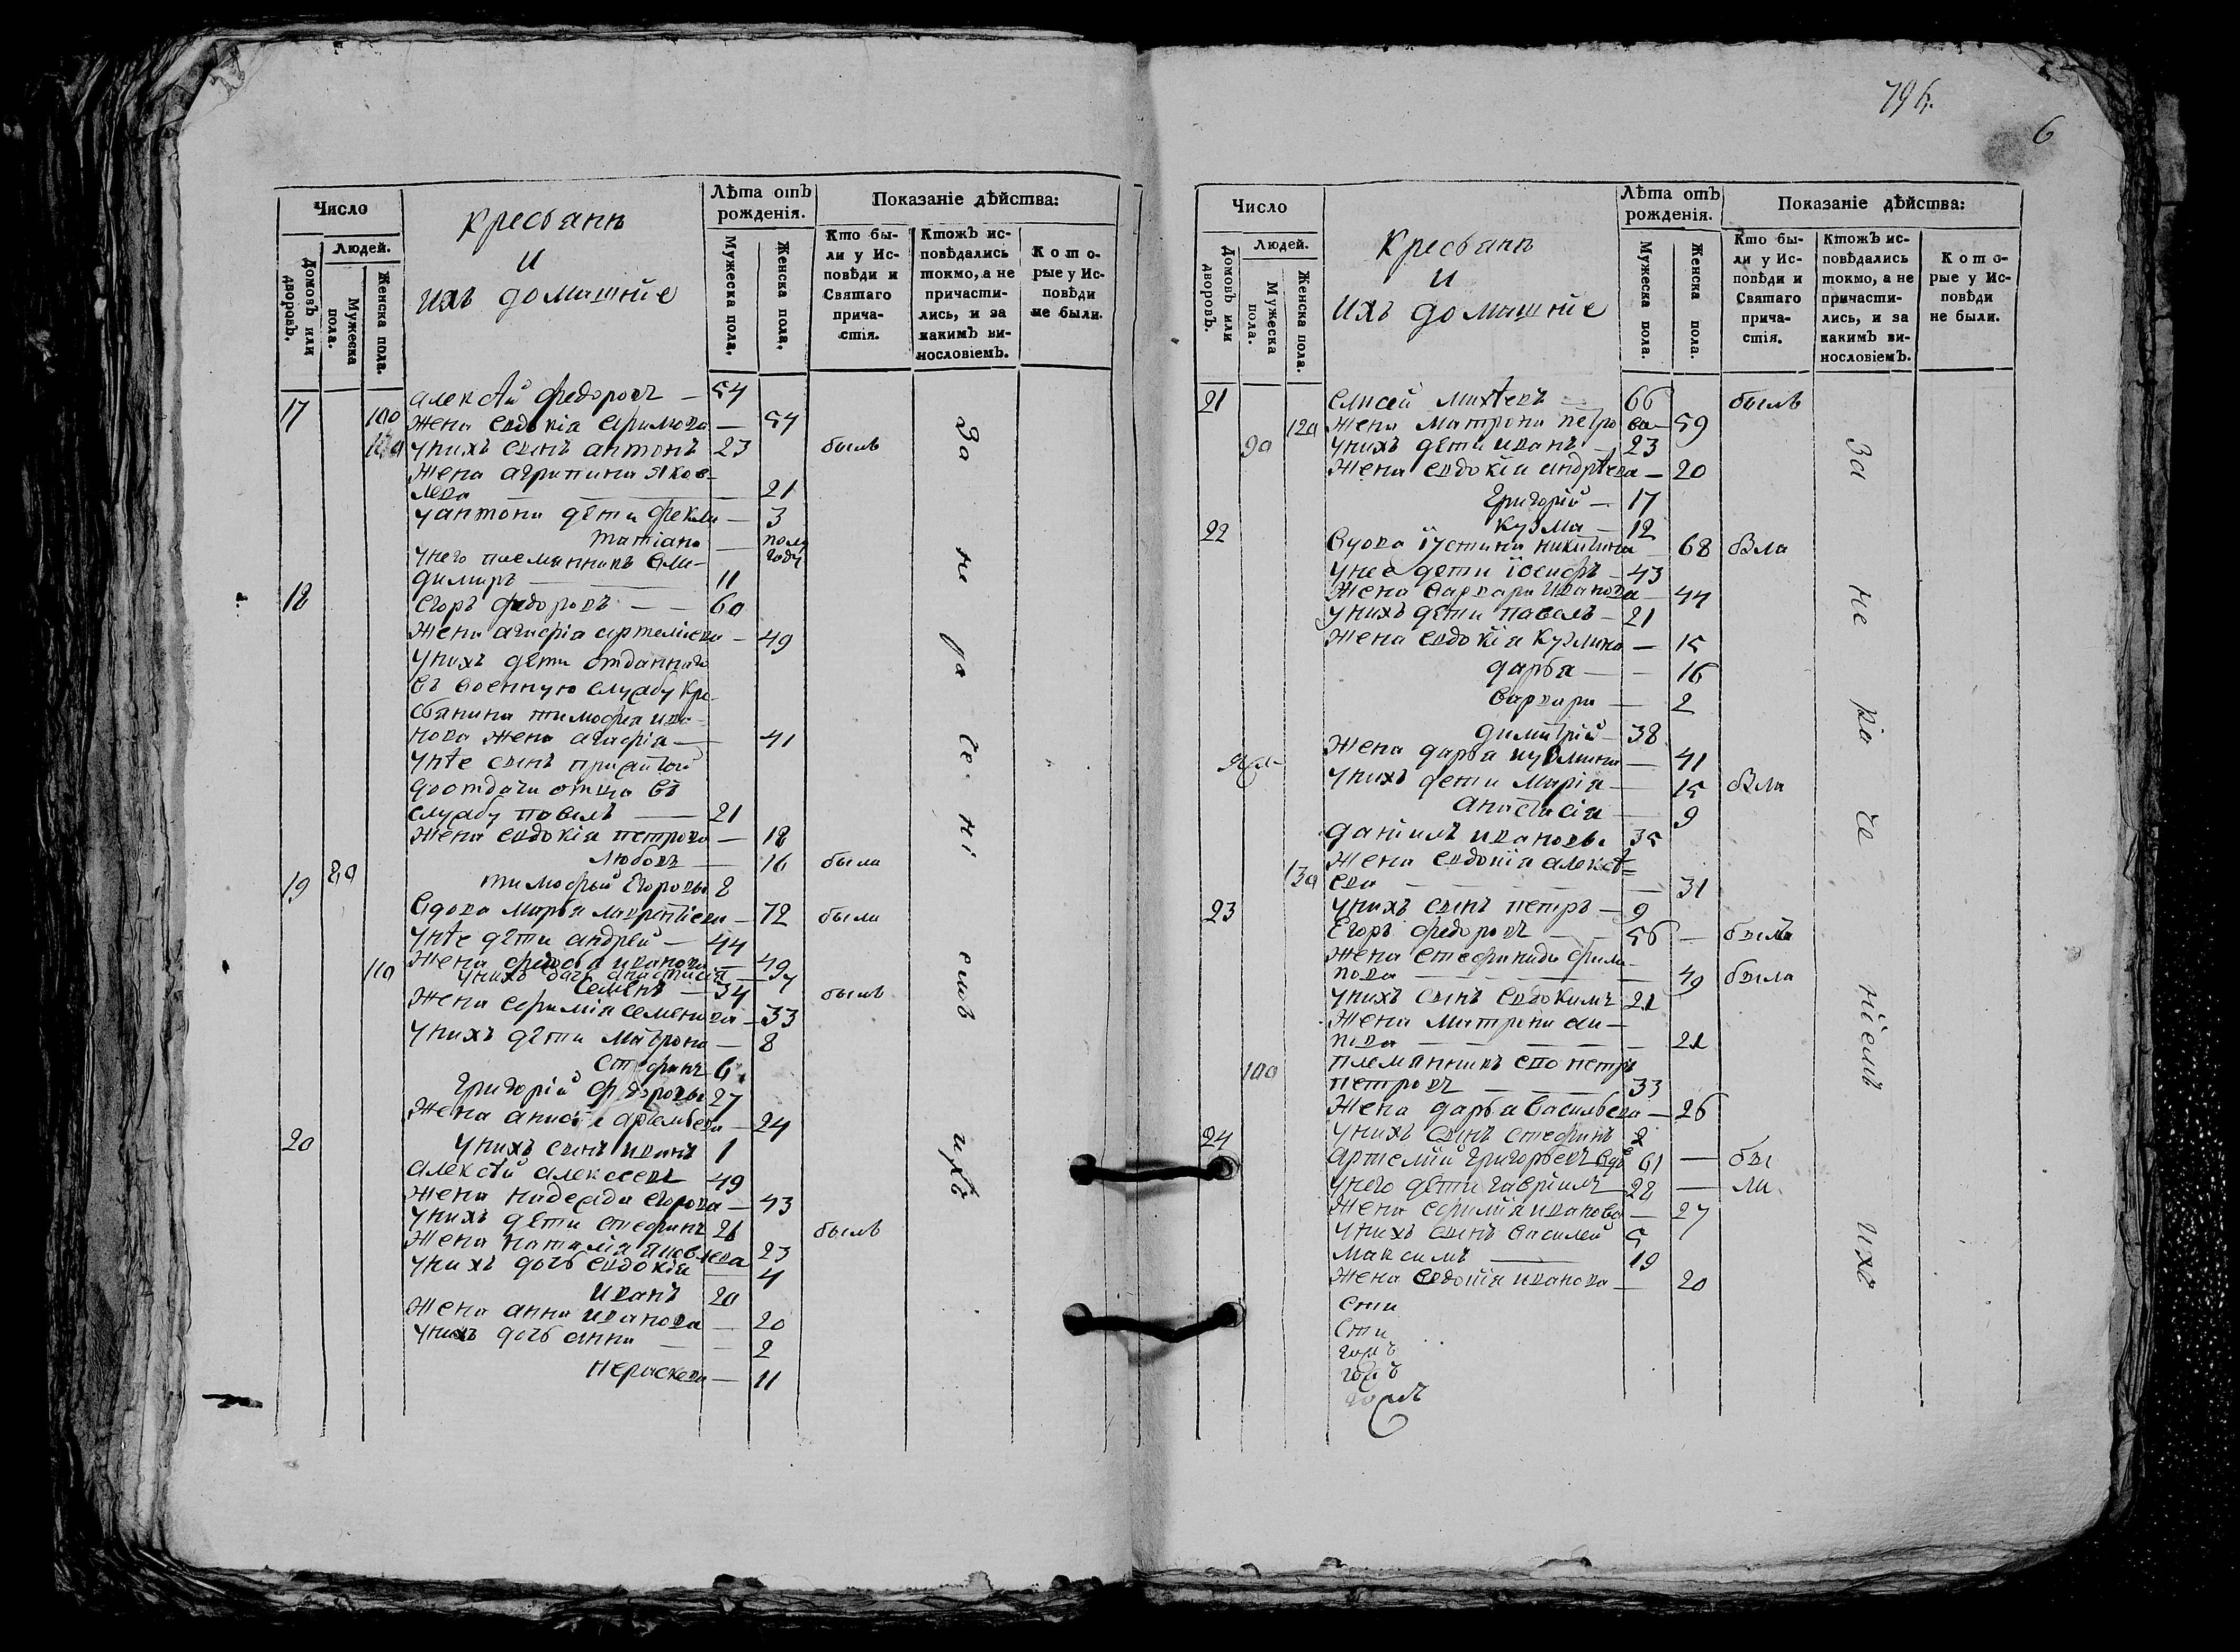 Число
Людей.
Домовъ или дворовъ.
Мужеска пола.
Женска пола.
Крестьянѣ
и
ихъ домашніе
Лѣта отъ рожденія.
Мужеска пола.
Женска пола.
Показаніе дѣйства:
Кто были у Исповѣди и Святаго причастія.
Ктожъ исповѣдались токмо, а не причастились, и за какимъ винословіемъ.
Которые у Исповѣди не были.
17 Алексѣй Федоровъ — 54
100 жена Евдокіа Ефимова — 54
у нихъ сынъ антонъ 23 былъ
жена агрипина Яков-
лева — 21
у антона дѣти Фекла — 3
татіана — полу
году
у него племянникъ Вла-
димиръ — 11
18 Егоръ Федоровъ — 60
жена агафіа артеміева — 49
у нихъ дѣти отданнаго
въ военную службу кре-
стьянина тимофея ива-
нова жена агафіа — 41
у нѣе сынъ прижитой
до отдачи отца въ
службу павелъ — 21
жена евдокіа петрова — 18
любовь — 16 была
19 80 тимофей Егоровъ 8
вдова Марья лаврентіева — 72 была
у нѣе дѣти андрей — 44
110 жена федосья иванова — 49
у нихъ дочь анастасія — 7
семенъ — 34 былъ
жена ефимія семенова — 33
у нихъ дѣти матрона — 8
стефанъ 6
григорій Федоровъ 27
жена анисія артемьева — 24
20 у нихъ сынъ иванъ 1
алексѣй алексеевъ 49
жена надежда егорова — 43
у нихъ дѣти стефанъ 26 былъ
жена наталія яковлева 23
у нихъ дочь евдокія — 4
иванъ 20
жена анна иванова — 20
у нихъ дочь анна — 2
параскева — 11
За не ра че ні емъ ихъ
796.
6
Число
Людей.
Домовъ или дворовъ.
Мужеска пола.
Женска пола.
Крестьянѣ
и
ихъ домашніе
Лѣта отъ рожденія.
Мужеска пола.
Женска пола.
Показаніе дѣйства:
Кто были у Исповѣди и Святаго причастія.
Ктожъ исповѣдались токмо, а не причастились, и за какимъ винословіемъ.
Которые у Исповѣди не были.
21 Елисей Михѣевъ — 66 былъ
120 жена Матрона петрова — 59
90 у нихъ дѣти иванъ — 23
жена евдокіа андрѣева — 20
григорій — 17
кузма — 12
22 вдова іустина никитина — 68 была
у нее дети іосифъ — 43
жена варвара иванова — 44
у нихъ дѣти павелъ — 21
жена евдокія кузмина — 15
дарья — 16
варвара — 2
димитрій — 38
жена дарья кузмина — 41
у нихъ дети марія — 15 была
анастасія — 9
даніилъ ивановъ 35
жена евдокія алексѣ-
130 ева — 31
у нихъ сынъ петръ — 9
23 Егоръ Федоровъ — 56 — былъ
жена стефанида фили-
пова — 49 была
у нихъ сынъ евдокимъ 21
жена матрона
нова — 21
100 племянникъ его петръ
петровъ — 33
жена дарья васильева — 26
у нихъ сынъ стефанъ 2
24 артемій григорьевъ вдовъ 61 — бы
у него дети гавріилъ — 28 — ли
жена ефимія иванова — 27
у нихъ сынъ василей 5
максимъ — 19
жена евдокія иванова — 20
За не ра че ніемъ ихъ